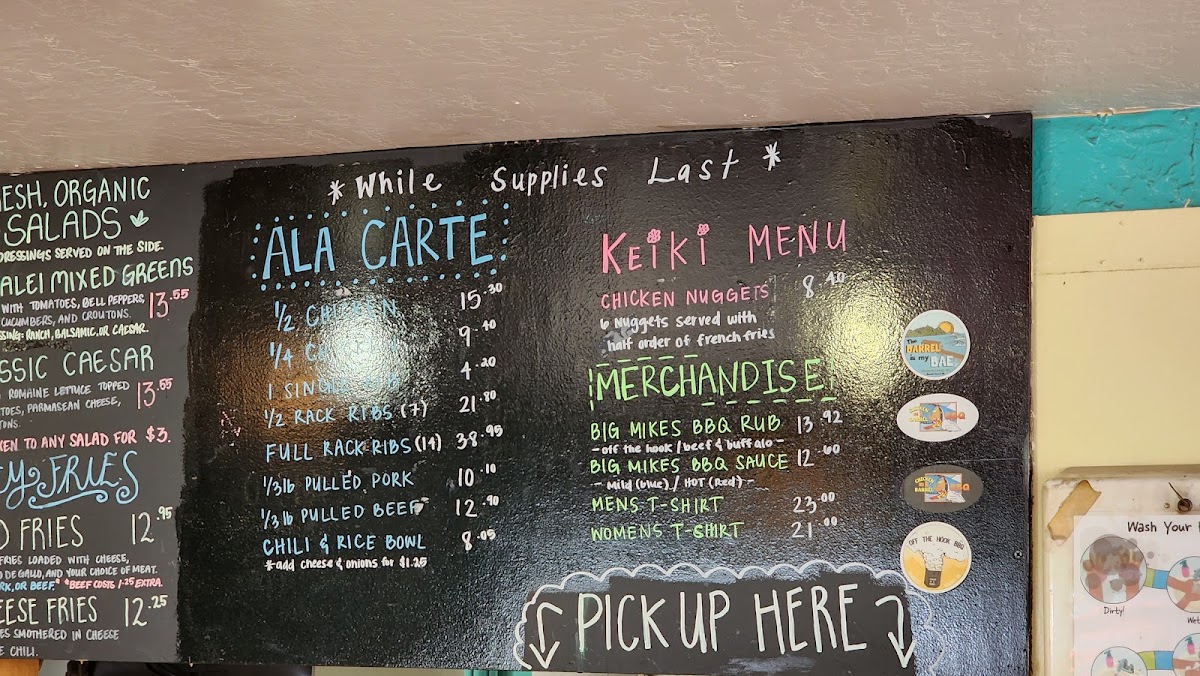 * While Supplies Last *
ESH, ORGANIC
SALADS
DRESSINGS SERVED ON THE SIDE.
ALEI MIXED GREENS
WITH TOMATOES, BELL PEPPERS, 13.55
CUCUMBERS, AND CROUTONS.
SSING: RANCH, BALSAMIC, OR CAESAR.
SSIC CAESAR
ROMAINE LETTUCE TOPPED 13.55
TOES, PARMASEAN CHEESE,
TONS.
KEN TO ANY SALAD FOR $3.
Y FRIES
D FRIES 12.95
FRIES LOADED WITH CHEESE,
O DE GALLO, AND YOUR CHOICE OF MEAT.
RK, OR BEEF.* *BEEF COSTS 1.25 EXTRA.
EESE FRIES 12.25
ES SMOTHERED IN CHEESE
E CHILI.
ALA CARTE
1/2 CHICKEN 15.30
1/4 9.40
1 4.20
1/2 RACK RIBS (7) 21.80
FULL RACK RIBS (14) 38.95
1/3 lb PULLED PORK 10.10
1/3 lb PULLED BEEF 12.90
CHILI & RICE BOWL 8.05
*add cheese & onions for $1.25
KEIKI MENU
CHICKEN NUGGETS 8.40
6 Nuggets served with
half order of french fries
MERCHANDISE
BIG MIKES BBQ RUB 13.92
- off the hook / beef & buffalo -
BIG MIKES BBQ SAUCE 12.60
- Mild (blue) / HOT (Red) -
MENS T-SHIRT 23.00
WOMENS T-SHIRT 21.00
PICK UP HERE
The
BARREL
is my
BAE
CHICKEN
BARREL BBQ
OFF THE HOOK BBQ
Wash Your
Dirty!
Wet